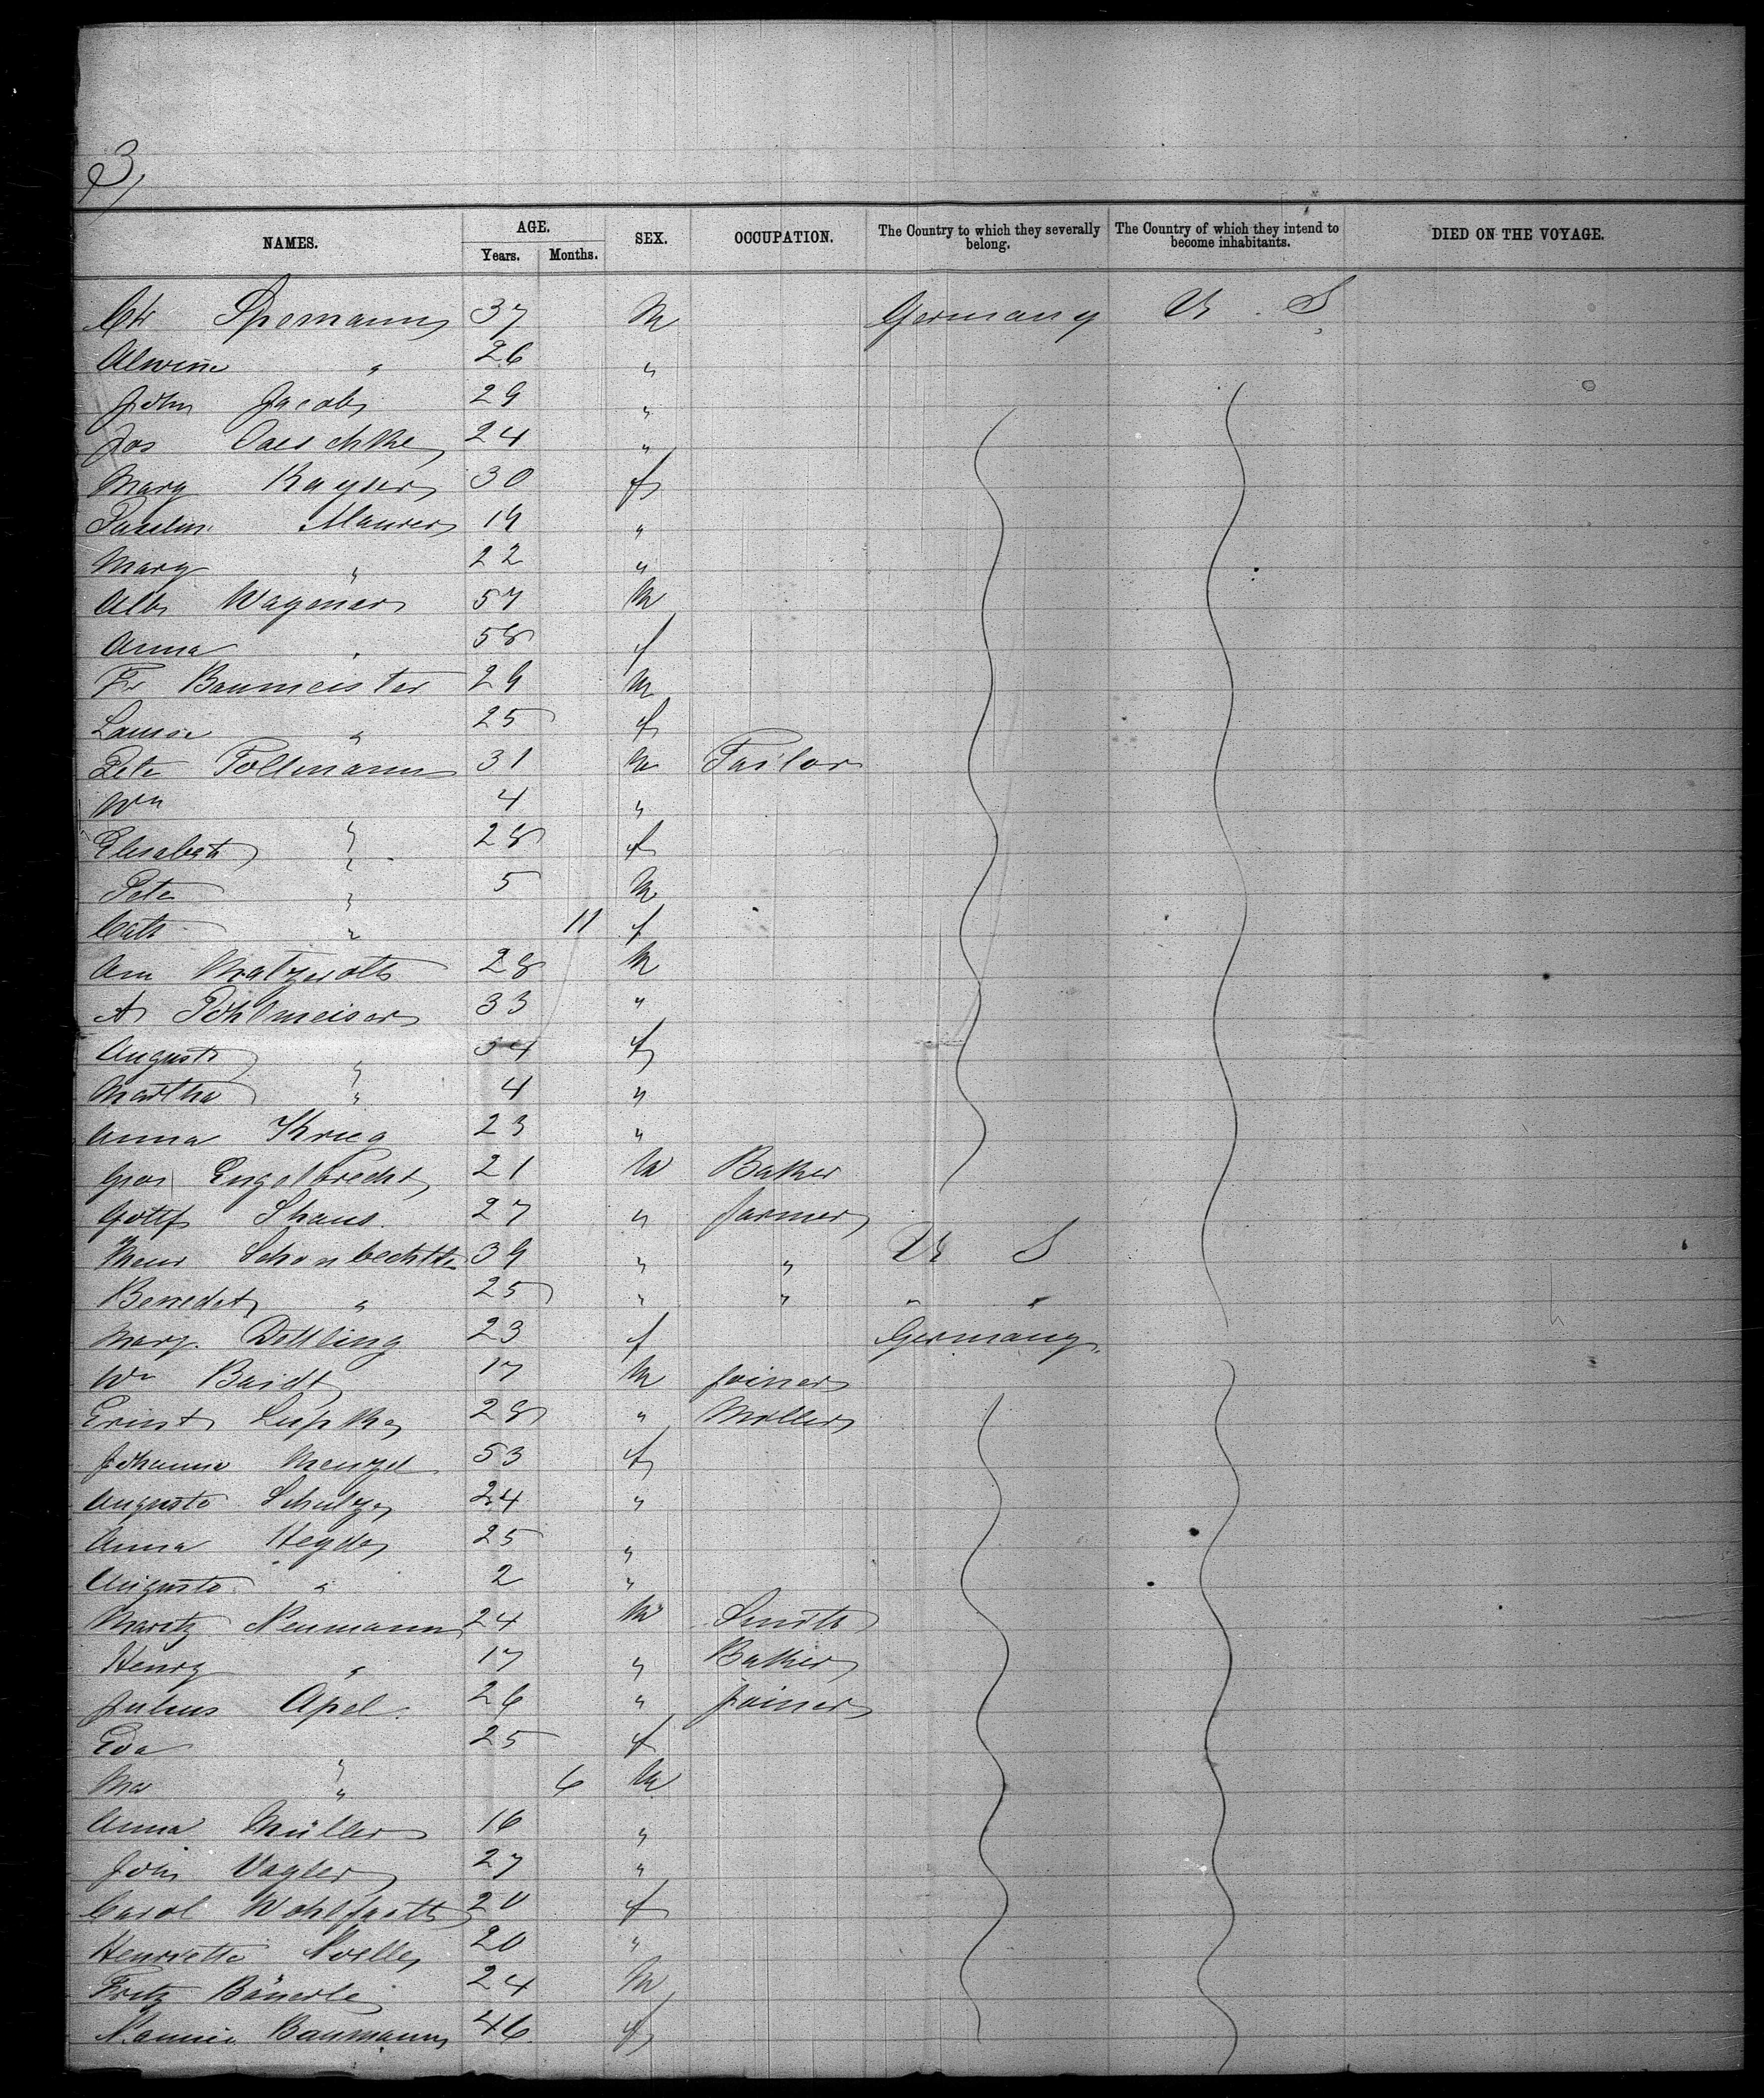 3,
NAMES. AGE. Years. Months. SEX. OCCUPATION. The Country to which they severally belong. The Country of which they intend to become inhabitants. DIED ON THE VOYAGE.
Chr Spemann 37 M Germany U. S
Alwine " 26 "
John Jacob 29 "
Jos 24 "
Mary Kayser 30 f
Paulin Maurer 19 "
Mary " 22 "
Alb Wagener 57 M
Anna " 58 f
Fr Baumeister 29 M
Louise " 25 f
Pete Tollmann 31 M Tailor
Wm 4 "
Elisabeth " 28 f
Pete " 5 M
Cath " 11 f
Matzeroth 28 M
A Pohlmeiser 33 "
Auguste " 34 f
Martha " 4 "
Anna Krug 23 "
Engelbrecht 21 M Baker
Gottf Shaus 27 " farmer
39 " " U S
Benedct " 25 " " " "
Mary Dettling 23 f Germany
Wm 17 M joiner
Ernst 28 " Miller
Johanna Menzel 53 f
Auguste Schulze 24 "
Anna Heyde 25 "
Auguste " 2 "
Moritz Neumann 24 M Smith
Henry " 17 " Baker
Julius Apel 26 " joiner
Eva 25 f
Ma " 6 M
Anna Müller 16 "
John Vogler 27 "
Carol Wohlfarth 20 f
Henriette Noelle 20 "
Fritz Bäuerle 24 M
Baumann 46 f